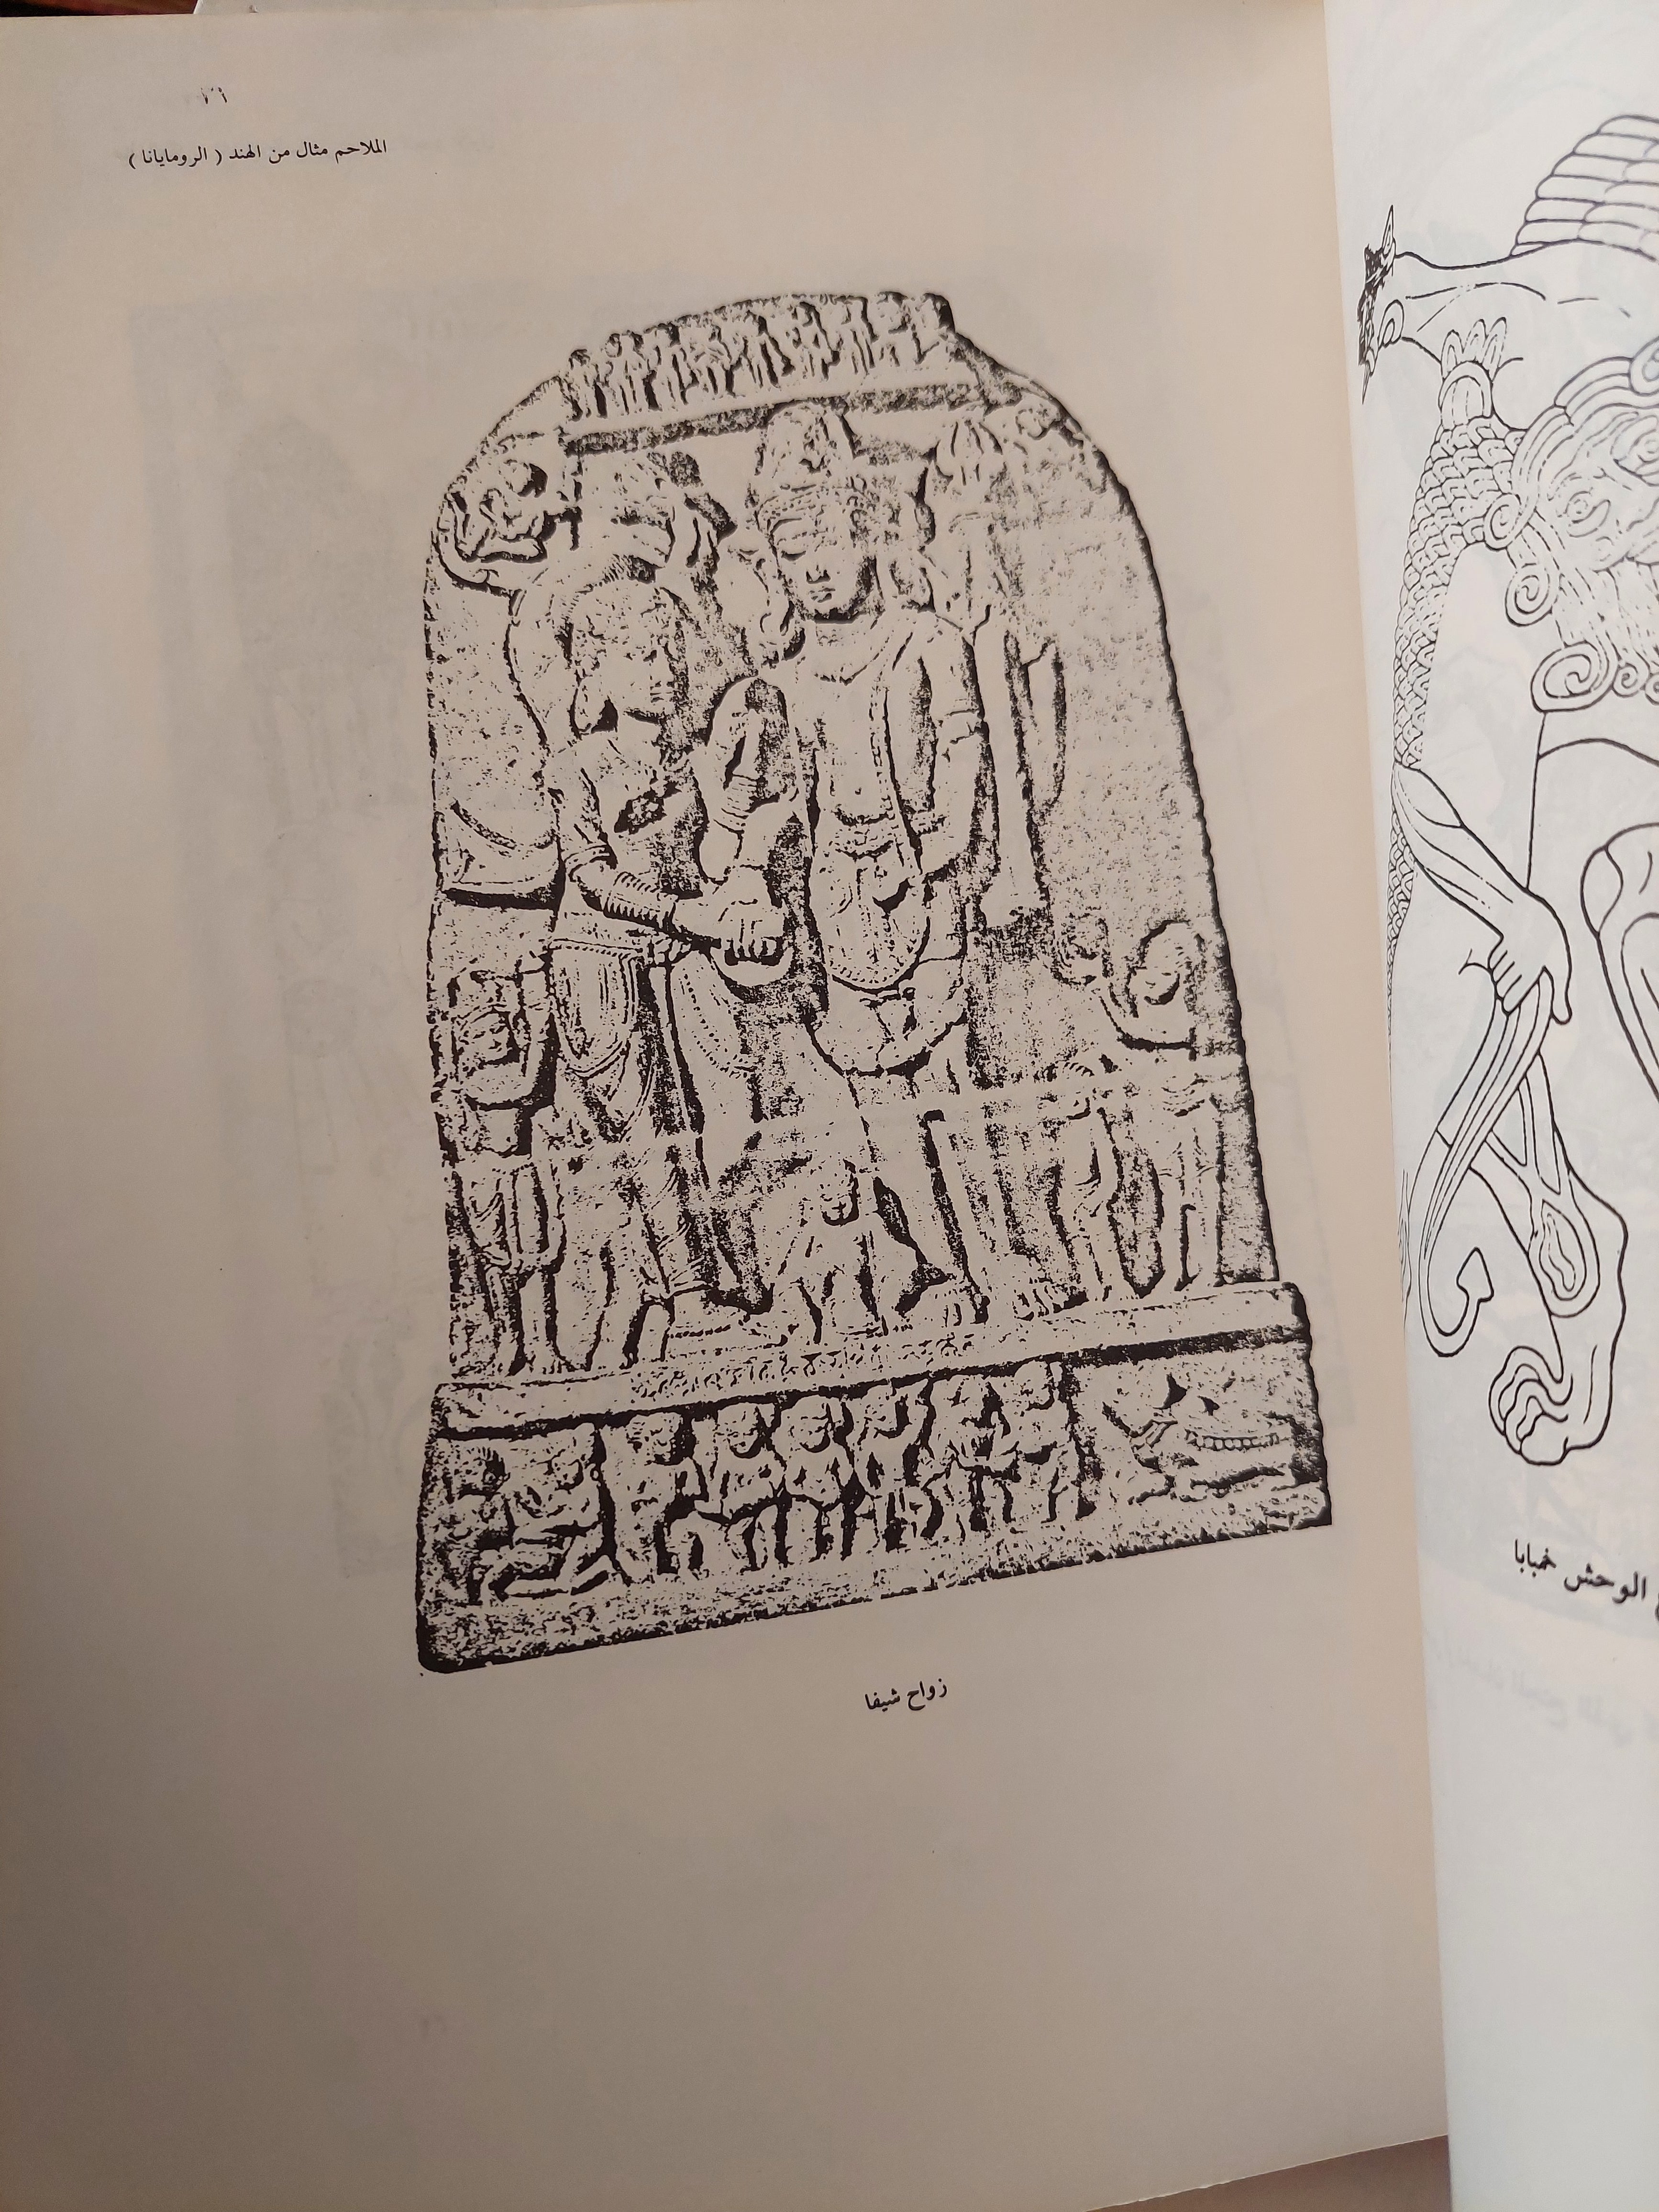 الملاحم مثال من الهند ( الرومايانا )
زواج شيفا
الوحش خمبابا